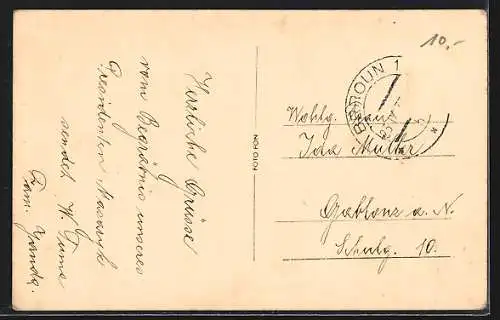 Herzliche Grüsse
vom Begräbnis unseres
Presidenten Masaryk
sendet W.
Fam. Janda.
NOH DION
10.-
BEROUN 1
Wohlg. Frau
Ida Müller
Gablonz a. N.
Schulg. 10.